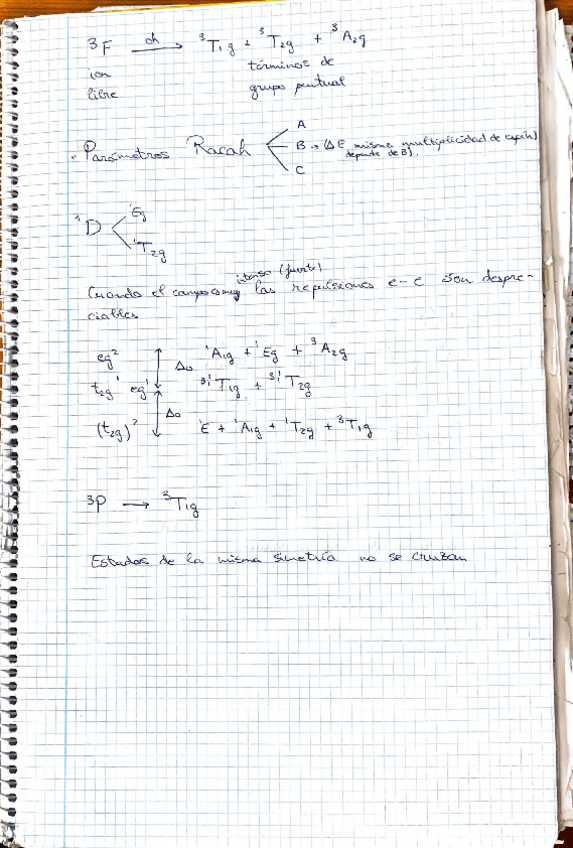 ³F —Oh→ ³T₁g + ³T₂g + ³A₂g
ion términos de
libre grupo puntual
A
• Parámetros Racah B → (ΔE misma multiplicidad de espín)
depende de B).
C
¹Eg
¹D
¹T₂g
intenso (fuerte)
Cuando el campo es muy las repulsiones e-e son despre-
ciables
eg² ¹A₁g + ¹Eg + ³A₂g
Δo
t₂g¹ eg¹ ³,¹T₁g + ³,¹T₂g
Δo
(t₂g)² ¹E + ¹A₁g + ¹T₂g + ³T₁g
³P → ³T₁g
Estados de la misma simetría no se cruzan